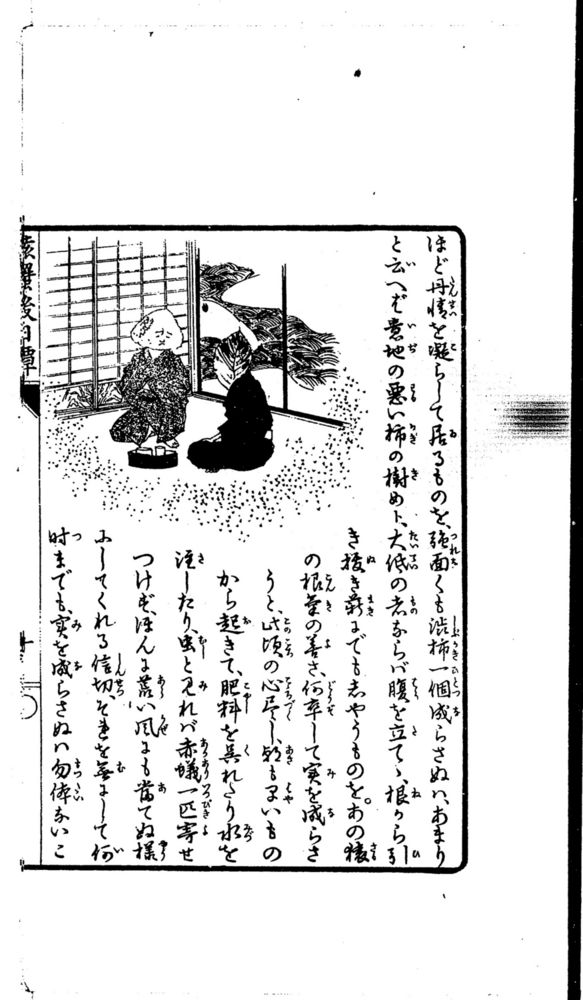 ほど丹情を凝らして居るものを、強面くも渋柿一個成らさぬハ、あまり
と云へバ意地の悪い柿の樹めト、大低の者ならバ腹を立てゝ、根から引
き抜き薪にでもしやうものを。あの猿
の根気の善さ、何卒して実を成らさ
うと、此頃の心尽し、朝も早いもの
から起きて、肥料を呉れたり水を
注したり、虫と見れバ赤蟻一匹寄せ
つけず、ほんに荒い風にも当てぬ様
にしてくれる信切、それを無にして何
時までも、実を成らさぬハ勿体ないこ
猿蟹後日譚